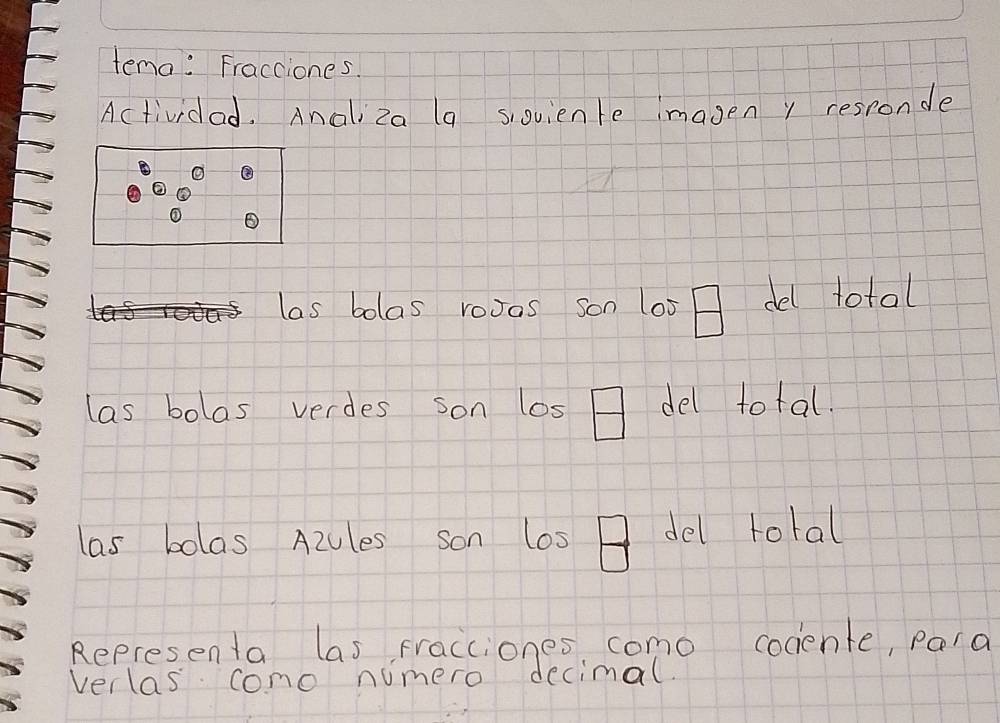 tema: Fracciones.
Actividad. Analiza la siguiente imagen y responde
las rojas las bolas rojas son los del total
las bolas verdes son los del total.
las bolas Azules son los del total
Representa las fracciones como cociente, para
verlas como número decimal.